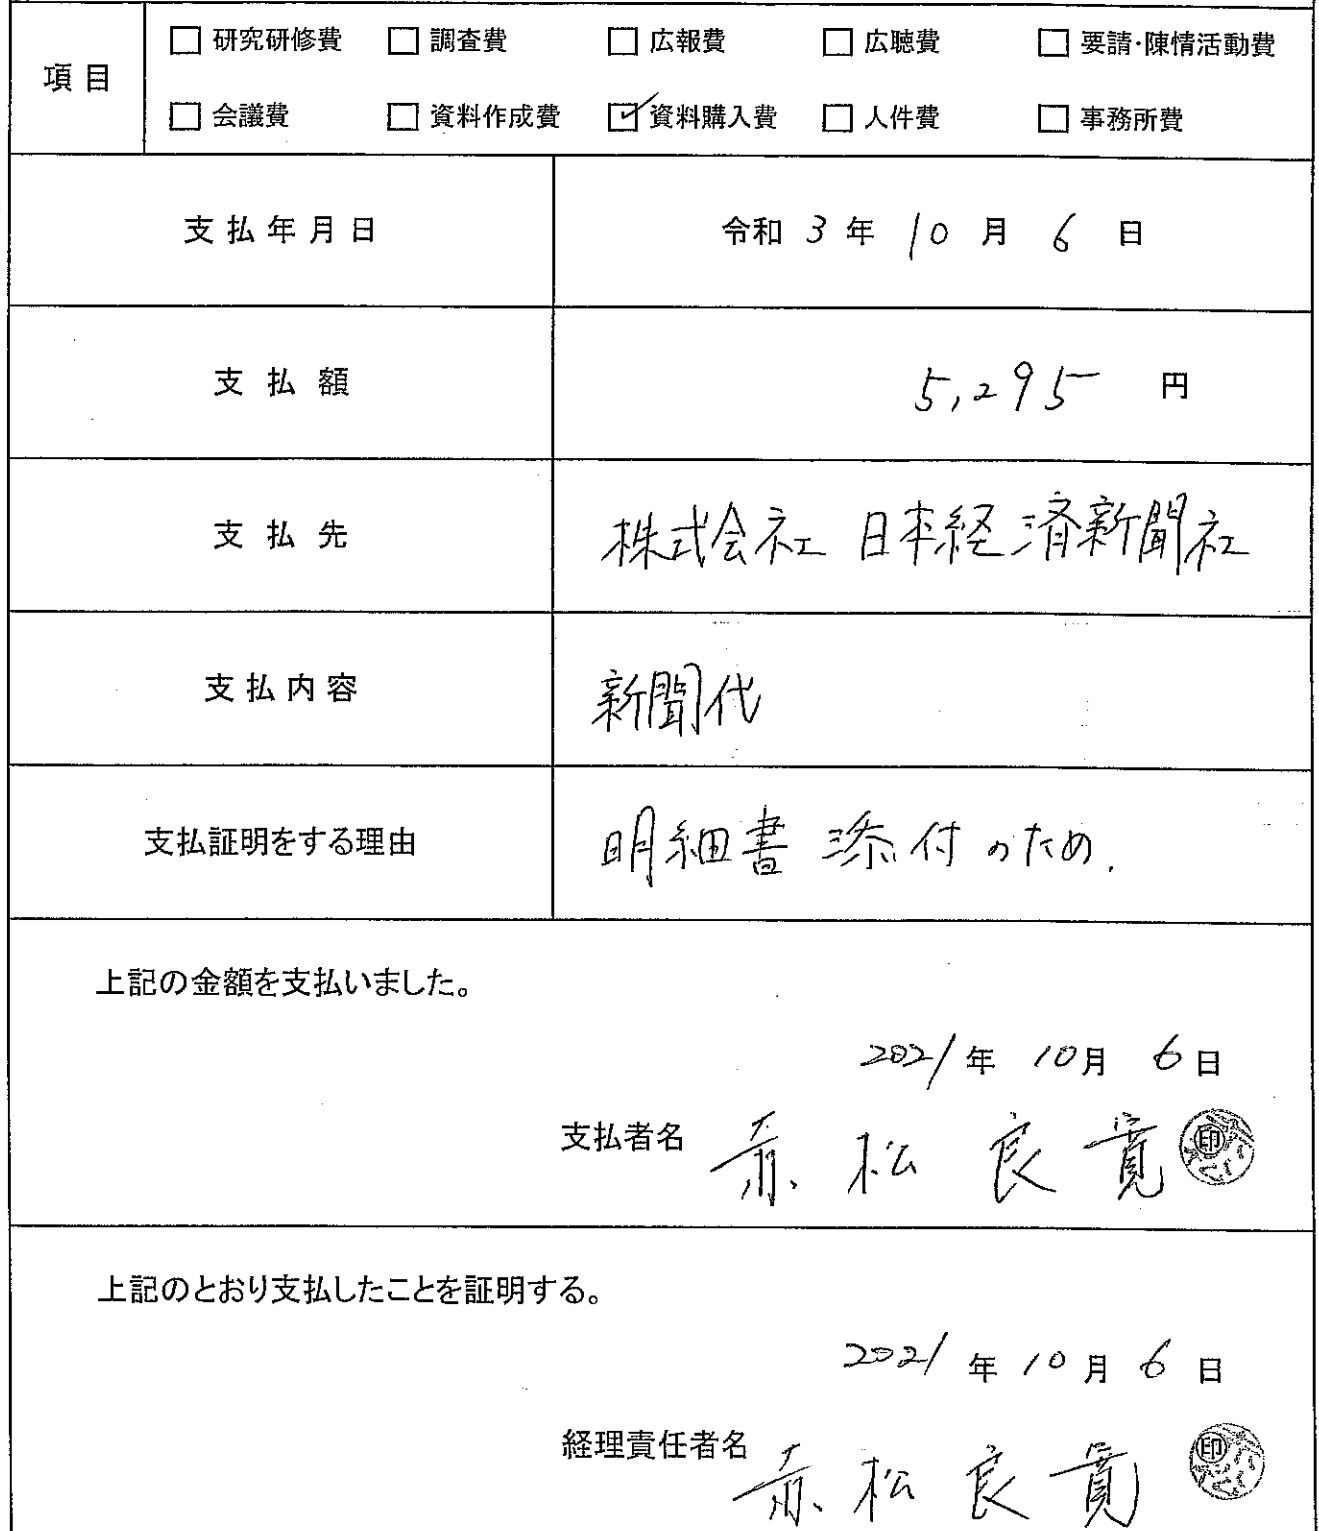 項目
□ 研究研修費 □ 調査費 □ 広報費 □ 広聴費 □ 要請・陳情活動費
□ 会議費 □ 資料作成費 ☑ 資料購入費 □ 人件費 □ 事務所費
支払年月日 令和 3 年 10 月 6 日
支払額 5,295 円
支払先 株式会社 日本経済新聞社
支払内容 新聞代
支払証明をする理由 明細書添付のため.
上記の金額を支払いました。
2021年 10月 6日
支払者名 赤松良寛 印
上記のとおり支払したことを証明する。
2021年 10月 6日
経理責任者名 赤松良寛 印